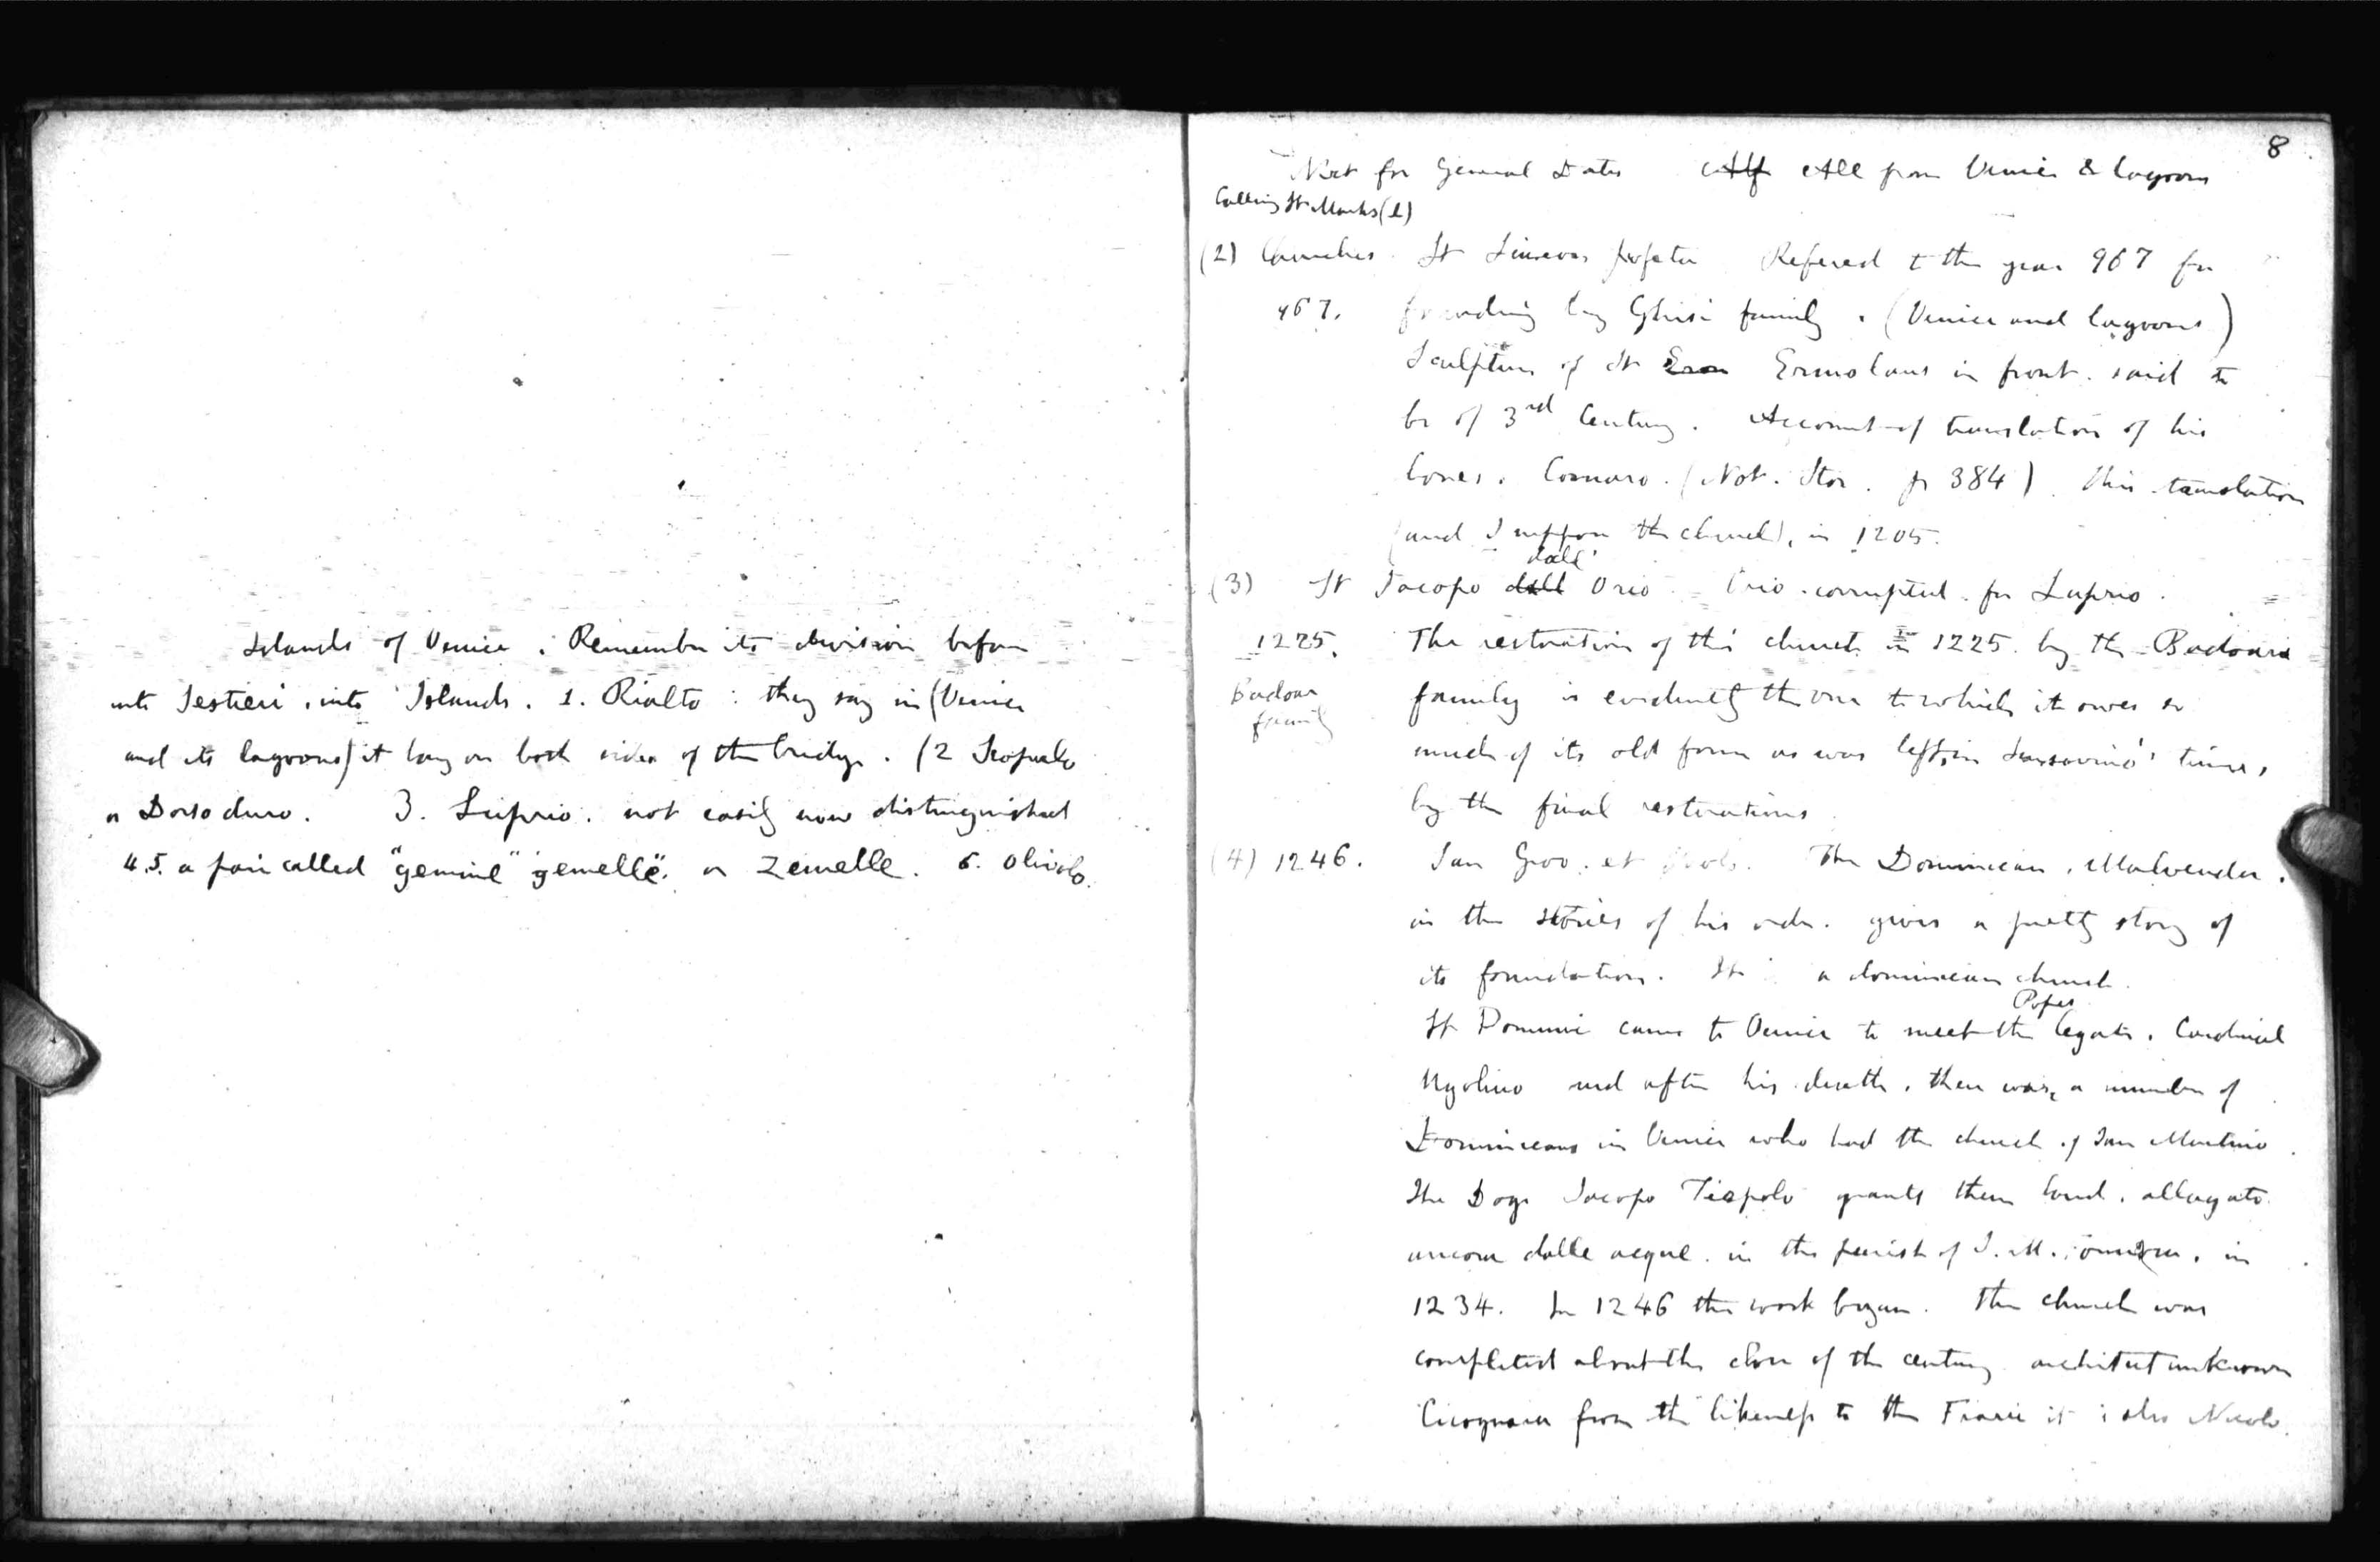 Islands of Venice. Remember its division before
into Sestieri, into Islands. 1. Rialto: they say in (Venice
and its lagoons) it lay on both sides of the bridge. (2 Scopulo
or Dorsoduro. 3. Luprio. not easily now distinguished
4.5. a pair called "gemine" gemelle". or Zemelle. 6. Olivolo.
8
Next for General Dates All from Venice & lagoons
Calling St Marks (1)
(2) Churches. St Simeon profeta Refered to the year 967 for
967. founding by Ghisi family. (Venice and lagoons)
Sculpture of St Ermolaus in front. said to
be of 3rd Century. Account of translation of his
bones. Cornaro. (Not. Stor. p 384). This translation
(and I suppose the church), in 1205.
dall'
(3) St Jacopo dall Orio. Orio. corrupted. for Luprio.
1225. The restoration of this church in 1225. by the Badoari
Badoar family is evidently the one to which it owes so
family
much of its old form as was left, in Sansovino's time,
by the final restorations
(4) 1246. San Giov. et Paolo. The Dominican, Malvenda.
in the stories of his order. gives a pretty story of
its foundation. It a dominican church.
Popes
St Dominic came to Venice to meet the legate. Cardinal
Ugolino and after his death, there was, a number of
Dominicans in Venice who had the church of San Martino.
The Doge Jacopo Tiepolo grants them land, allagato
ancora dalle acque. in the parish of S. M. Formosa, in
1234. In 1246 the work began. The church was
completed about the close of the century architect unknown
Cicognara from the likeness to the Frari it also Nicolo.